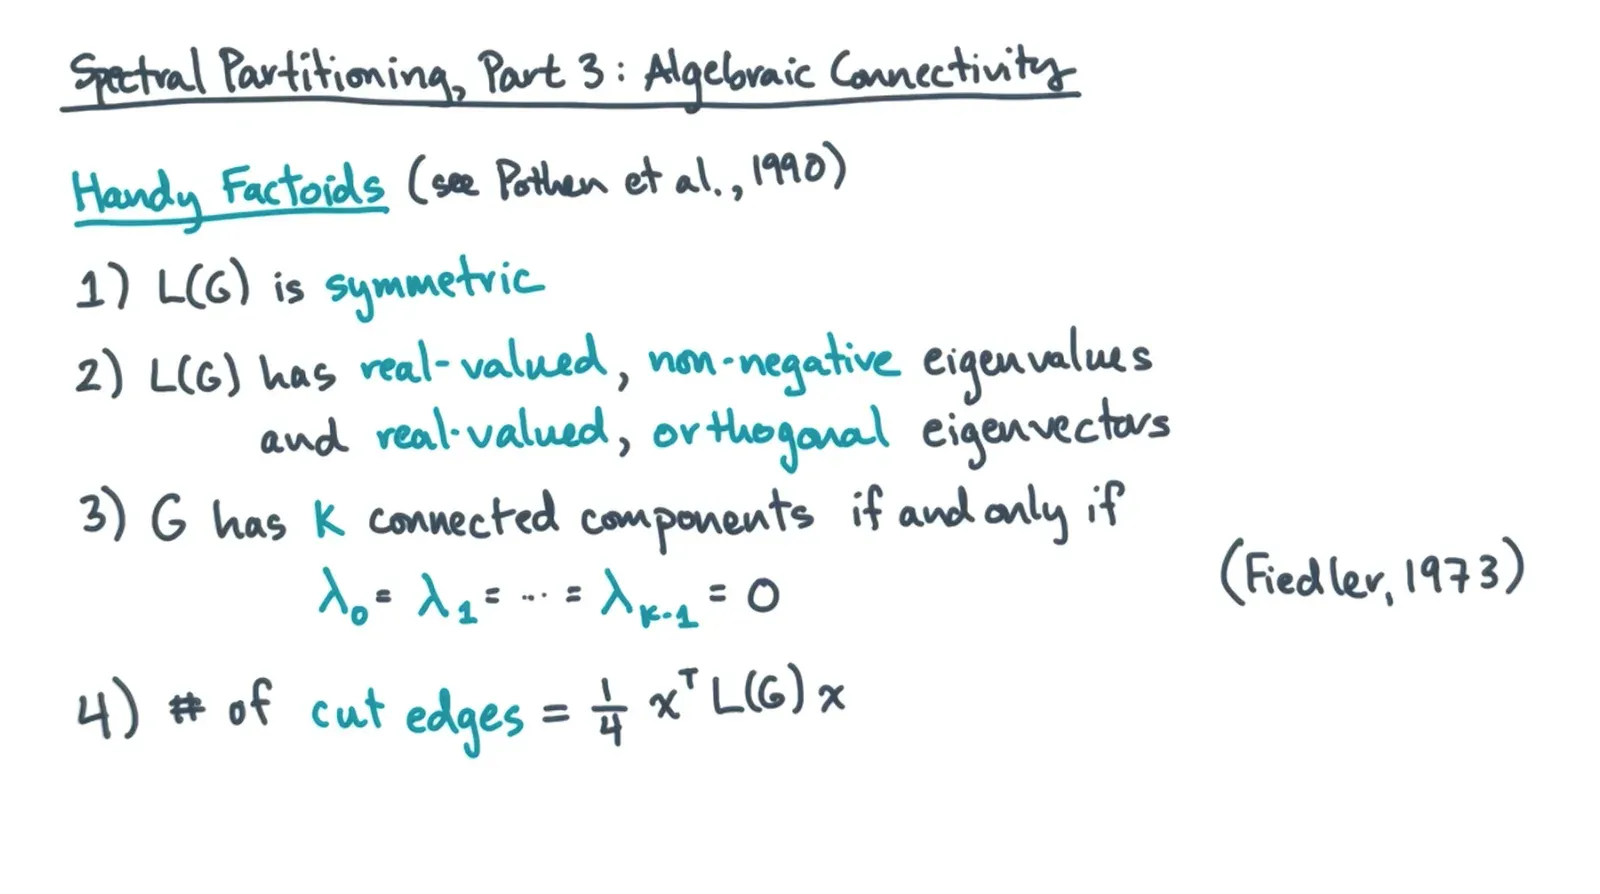 Spectral Partitioning, Part 3: Algebraic Connectivity
Handy Factoids (see Pothen et al., 1990)
1) L(G) is symmetric
2) L(G) has real-valued, non-negative eigenvalues
and real-valued, orthogonal eigenvectors
3) G has K connected components if and only if
λ₀ = λ₁ = ... = λₖ₋₁ = 0
(Fiedler, 1973)
4) # of cut edges = 1/4 xᵀ L(G) x